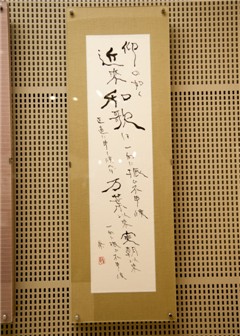 仰の如く
近来和歌は一向に振ひ不申候
正直に申し候へば万葉以来実朝以来
一向に振ひ不申候